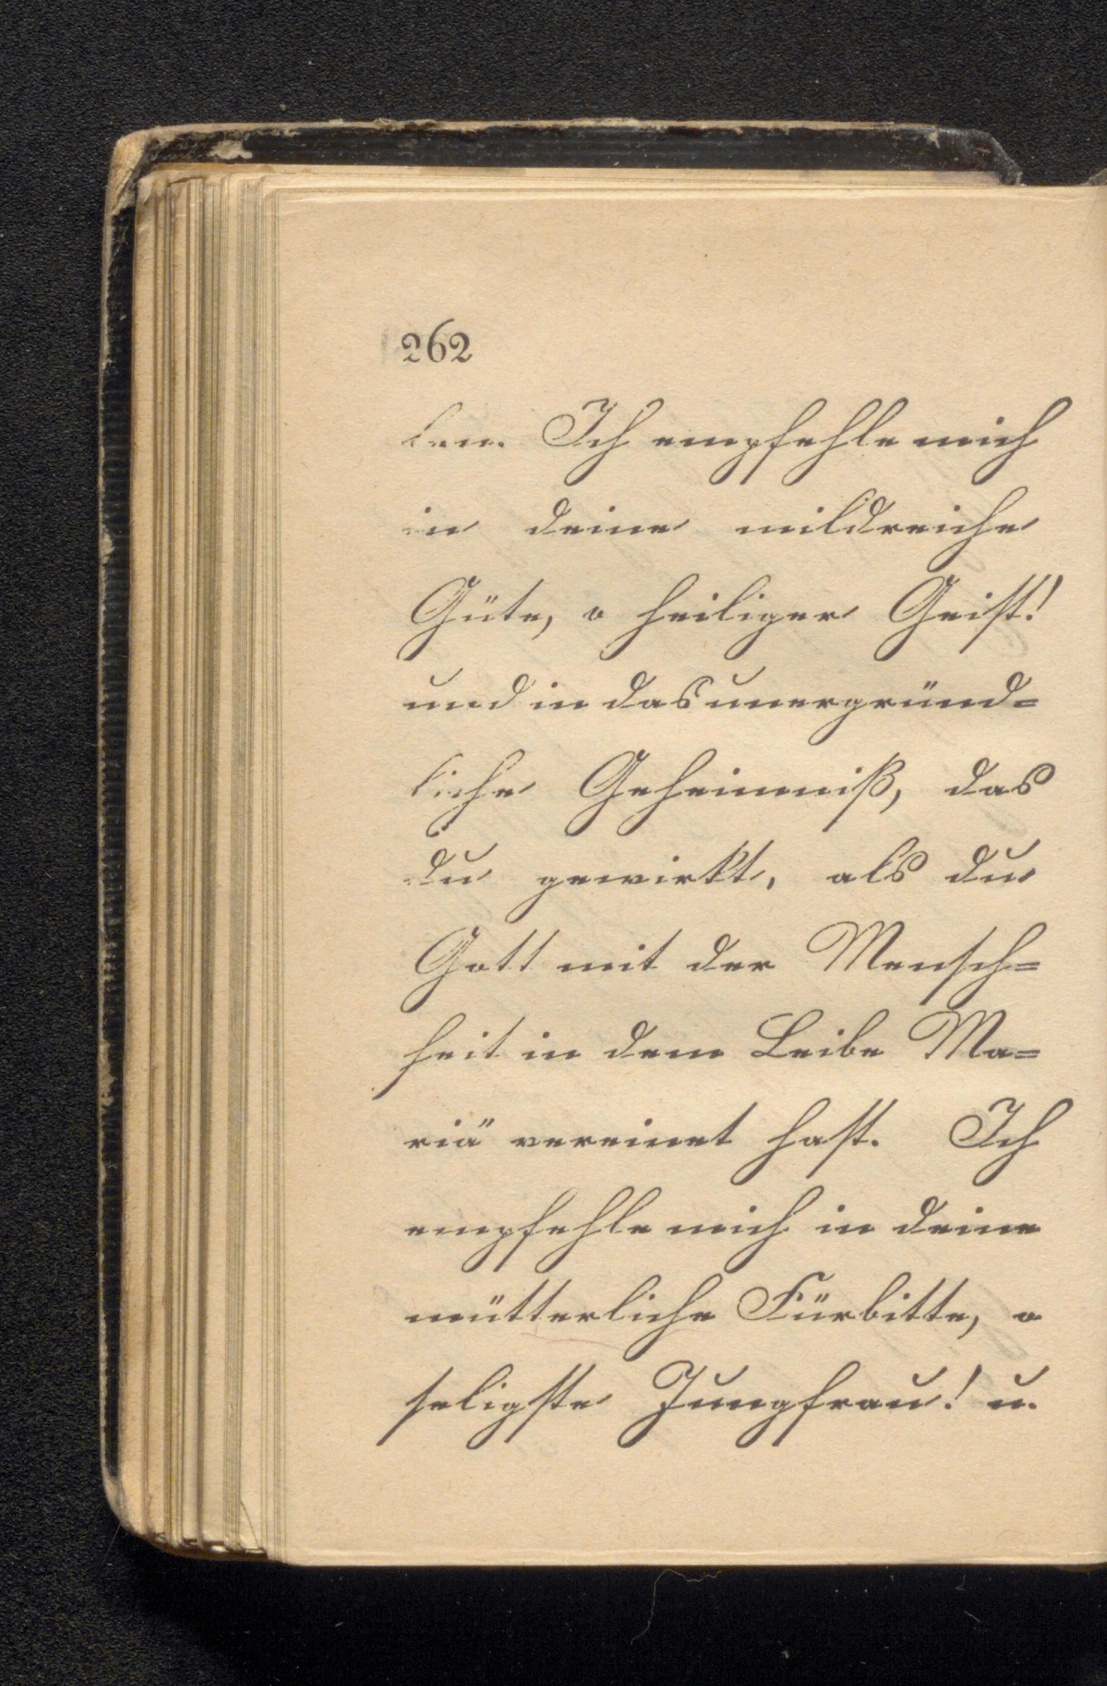 262
ben. Ich empfehle mich
in deine mildreiche
Güte, o heiliger Geist!
und in das unergründ=
liche Geheimniß, das
du gewirkt, als du
Gott mit der Mensch=
heit in dem Leibe Ma=
riä vereinet hast. Ich
empfehle mich in deine
mütterliche Fürbitte, o
seligste Jungfrau! u.